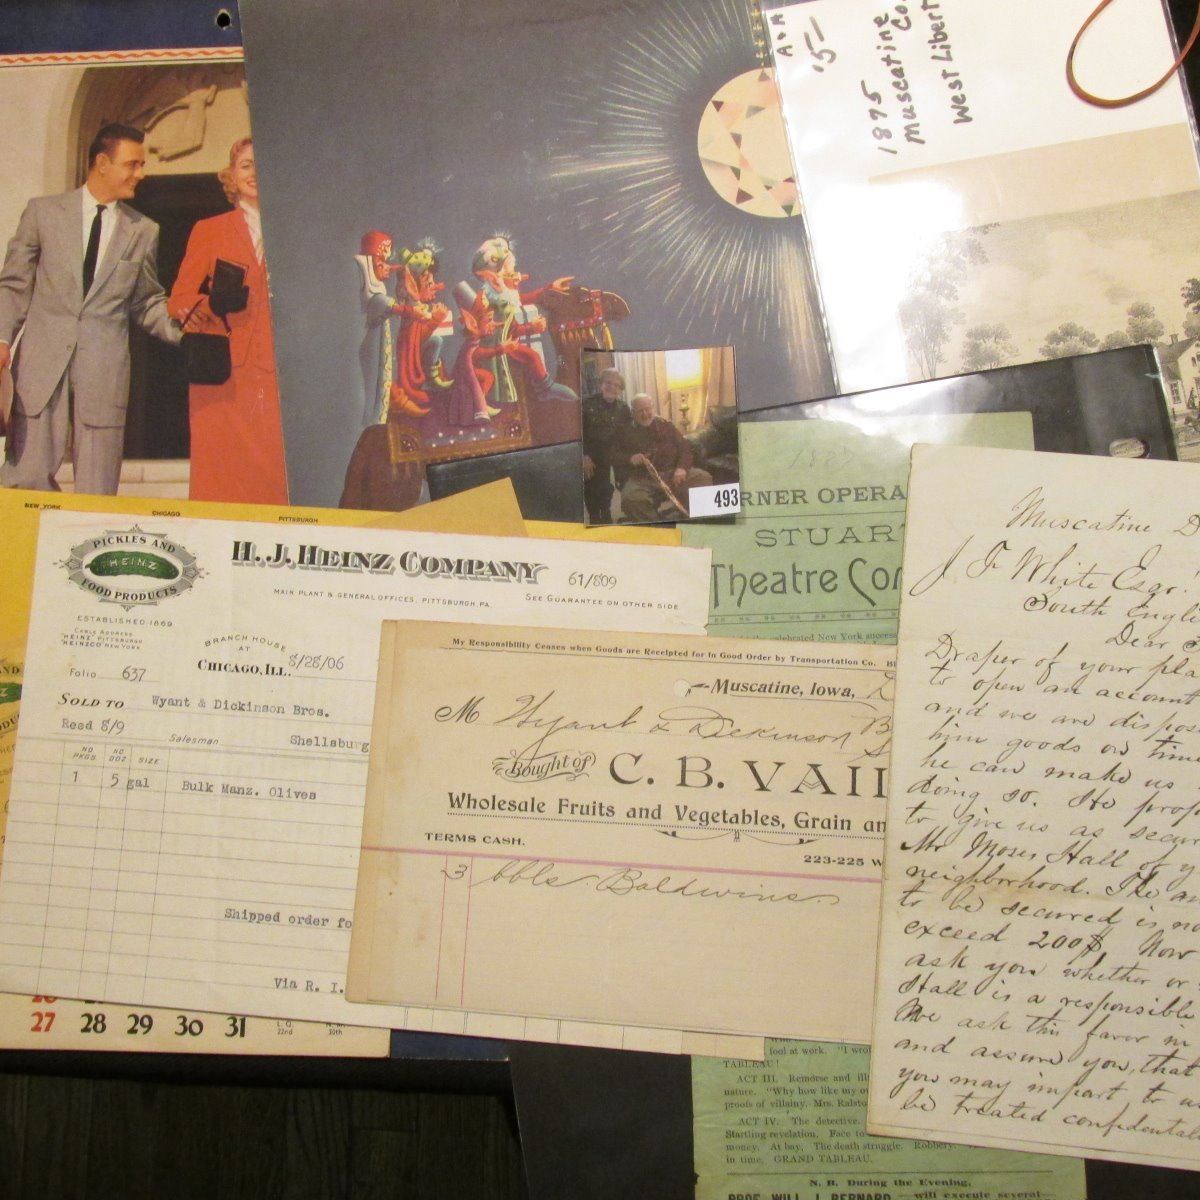 A & A
15-
1875
Muscatine
Co.
West Libert
493
NEW YORK
CHICAGO
PITTSBURGH
PICKLES AND
HEINZ
FOOD PRODUCTS
ESTABLISHED 1869
CABLE ADDRESS
"HEINZ" PITTSBURGH
HEINZCO NEW YORK
H. J. HEINZ COMPANY
61/809
MAIN PLANT & GENERAL OFFICES, PITTSBURGH, PA.
SEE GUARANTEE ON OTHER SIDE
BRANCH HOUSE
AT
CHICAGO, ILL. 8/28/06
Folio 637
SOLD TO Wyant & Dickinson Bros.
Reed 8/9 Salesman Shellsburg
NO PKGS NO DOZ SIZE
1 5 gal Bulk Manz. Olives
Shipped order fo
Via R. I.
27 28 29 30 31
My Responsibility Ceases when Goods are Receipted for in Good Order by Transportation Co.
Muscatine, Iowa,
M Wyant & Dickinson B
Bought of C. B. VAI
Wholesale Fruits and Vegetables, Grain an
TERMS CASH.
223-225 W
3 bbls Baldwins
1887
RNER OPERA
STUAR
Theatre Co
celebrated New York success
fool at work. "I wro
TABLEAU!
ACT III. Remorse and ill
nature. "Why how like my o
proofs of villainy. Mrs. Ralsto
ACT IV. The detective.
Startling revelation. Face to
money. At bay. The death struggle. Robbery
in time. GRAND TABLEAU.
N. B. During the Evening,
PROF. WILL J. BERNARD will execute several
Muscatine
J F White Esqr.
South Engli
Dear S
Draper of your pla
to open an account
and we are dispos
him goods on time
he can make us
doing so. He prop
to give us as secur
Mr Moses Hall of y
neighborhood. The am
to be secured is no
exceed 200$ Now
ask you whether or
Hall is a responsible
We ask this favor in
and assure you, that
you may impart to us
be treated confidental